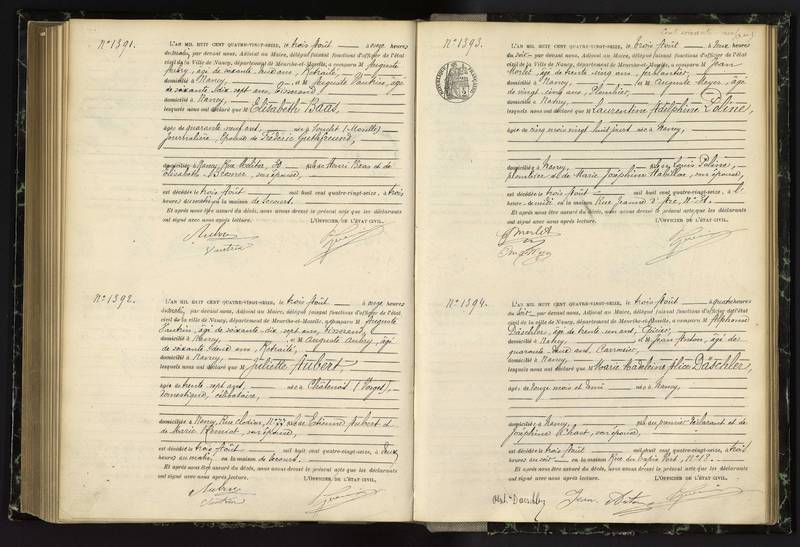 N° 1391.
L'AN MIL HUIT CENT QUATRE-VINGT-SEIZE, le trois Août à onze heures
du matin, par devant nous, Adjoint au Maire, délégué faisant fonctions d'officier de l'état
civil de la Ville de Nancy, département de Meurthe-et-Moselle, a comparu M Auguste
Aubry, âgé de soixante deux ans, Retraité,
domicilié à Nancy, et M Auguste Vautrin, âgé
de soixante-dix-sept ans, tisserand,
domicilié à Nancy,
lesquels nous ont déclaré que M Elisabeth Baas,
âgée de quarante neuf ans, née à (Moselle)
journalière, épouse de Frédéric
domiciliée à Nancy, Rue fille de Henri Baas et de
Elisabeth son épouse,
est décédée le trois Août mil huit cent quatre-vingt-seize, à trois
heures du matin en la maison de secours.
Et après nous être assuré du décès, nous avons dressé le présent acte que les déclarants
ont signé avec nous après lecture. L'OFFICIER DE L'ÉTAT CIVIL,
N° 1392.
L'AN MIL HUIT CENT QUATRE-VINGT-SEIZE, le trois Août à onze heures
du matin, par devant nous, Adjoint au Maire, délégué faisant fonctions d'officier de l'état
civil de la ville de Nancy, département de Meurthe-et-Moselle, a comparu M Auguste
Vautrin, âgé de soixante-dix-sept ans, tisserand,
domicilié à Nancy, et M Auguste Aubry, âgé
de soixante deux ans, Retraité,
domicilié à Nancy,
lesquels nous ont déclaré que M Juliette Aubert,
âgée de trente sept ans, née à Châtenois (Vosges),
domestique, célibataire,
domiciliée à Nancy, Rue N° 77 fille de Etienne Aubert et
de Marie son épouse,
est décédée le trois Août mil huit cent quatre-vingt-seize, à deux
heures du matin en la maison de secours.
Et après nous être assuré du décès, nous avons dressé le présent acte que les déclarants
ont signé avec nous après lecture. L'OFFICIER DE L'ÉTAT CIVIL,
N° 1393.
L'AN MIL HUIT CENT QUATRE-VINGT-SEIZE, le trois Août à deux heures
du soir, par devant nous, Adjoint au Maire, délégué faisant fonctions d'officier de l'état
civil de la Ville de Nancy, département de Meurthe-et-Moselle, a comparu M Jean
Morlet, âgé de trente cinq ans, ferblantier,
domicilié à Nancy, et M Auguste Meyer, âgé
de vingt cinq ans, Plombier,
domicilié à Nancy,
lesquels nous ont déclaré que M Laurentine Adolphine Poline,
âgée de cinq mois vingt huit jours née à Nancy,
domiciliée à Nancy, fille de Louis Poline,
plombier et de Marie Joséphine son épouse,
est décédée le trois Août mil huit cent quatre-vingt-seize, à l'
heure de midi en la maison Rue Jeanne d'Arc, N°
Et après nous être assuré du décès, nous avons dressé le présent acte que les déclarants
ont signé avec nous après lecture. L'OFFICIER DE L'ÉTAT CIVIL,
Morlet
N° 1394.
L'AN MIL HUIT CENT QUATRE-VINGT-SEIZE, le trois Août à quatre heures
du soir, par devant nous, Adjoint au Maire, délégué faisant fonctions d'officier de l'état
civil de la ville de Nancy, département de Meurthe-et-Moselle, a comparu M Alphonse
Däschler, âgé de trente un ans,
domicilié à Nancy, et M Jean Anton, âgé de
quarante deux ans,
domicilié à Nancy,
lesquels nous ont déclaré que M Marie Madeleine Alice Däschler,
âgée de douze mois et demi née à Nancy,
domiciliée à Nancy, fille du premier déclarant et de
Joséphine son épouse,
est décédée le trois Août mil huit cent quatre-vingt-seize, à trois
heures du soir en la maison Rue du N° 18.
Et après nous être assuré du décès, nous avons dressé le présent acte que les déclarants
ont signé avec nous après lecture. L'OFFICIER DE L'ÉTAT CIVIL,
Jean Anton